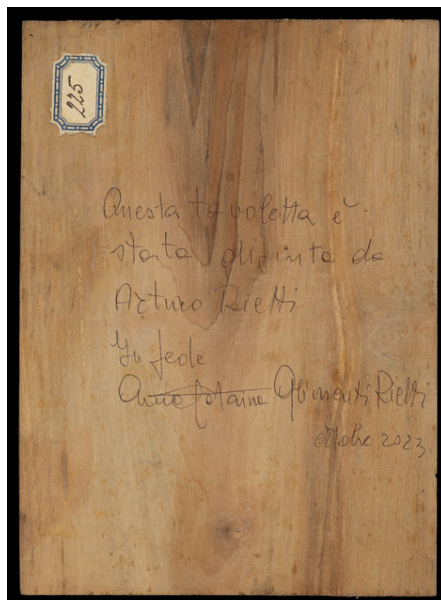 225
Questa tavoletta è
stata dipinta da
Arturo Rietti
In fede
Rietti
ottobre 2023